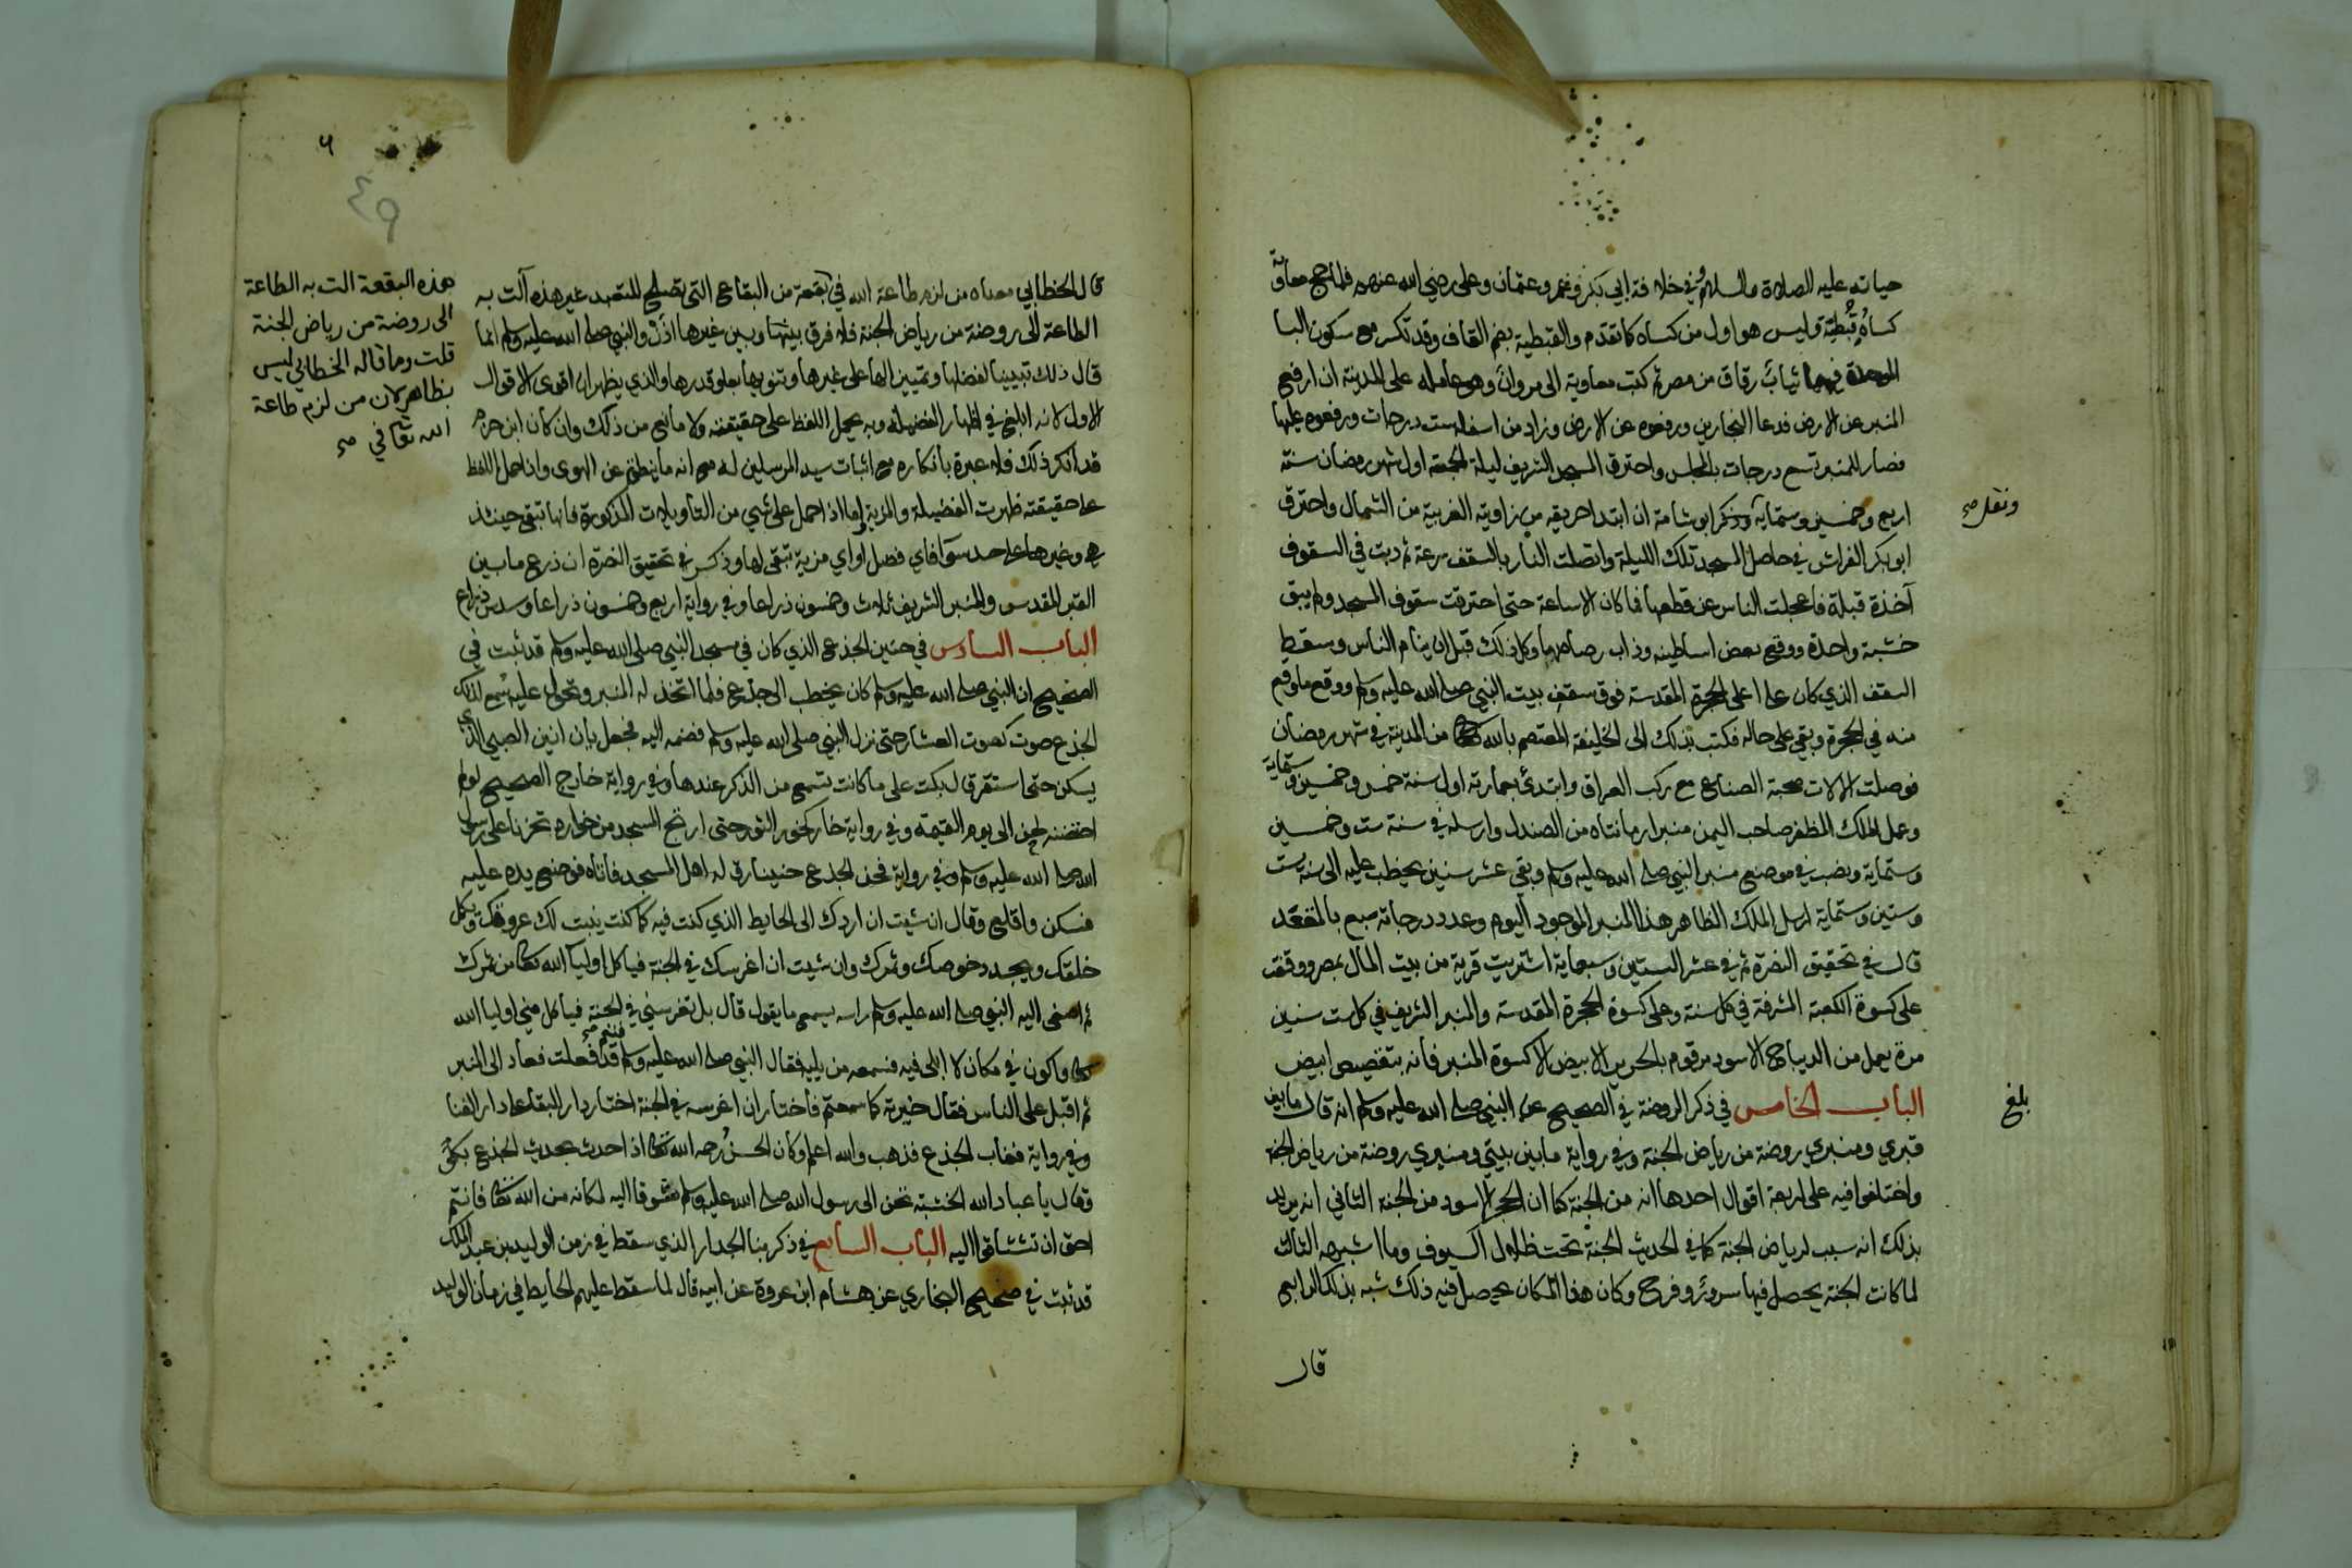 حياته عليه الصلاة والسلام وفي خلافة ابي بكر وعمر وعثمان وعلى رضي الله عنهم فلما حج معاوية
كساه قبطية وليس هو اول من كساه كما تقدم والقبطية بضم القاف وقد تكسر مع سكون البا
الموحدة فيهما ثياب رقاق من مصر ثم كتب معاوية الى مروان وهو عامله على المدينة ان ارفع
المنبر عن الارض فدعا النجارين ورفعوه عن الارض وزاد من اسفله ست درجات ورفعوه عليها
فصار للمنبر تسع درجات بالمجلس واحترق المسجد الشريف ليلة الجمعة اول شهر رمضان سنة
اربع وخمسين وستماية وذكر ابو شامة ان ابتدا حريقه من زاويته الغربية من الشمال واحترق
ونقل صح
ابو بكر الفراش في حاصل المسجد تلك الليلة واتصلت النار بالسقف بسرعة ثم دبت في السقوف
آخذة قبلة فاعجلت الناس عن قطعها فما كان الا ساعة حتى احترقت سقوف المسجد ولم يبق
خشبة واحدة ووقع بعض اساطينه وذاب رصاصها وكل ذلك قبل ان ينام الناس وسقط
السقف الذي كان على اعلى الحجرة المقدسة فوق سقف بيت النبي صلى الله عليه وسلم ووقع ما وقع
منه في الحجرة وبقي على حاله فكتب بذلك الى الخليفة المعتصم بالله من المدينة في شهر رمضان
فوصلت الالات صحبة الصناع مع ركب العراق وابتدئ بعمارته اول سنة خمس وخمسين وستماية
وعمل الملك المظفر صاحب اليمن منبرا رمانتاه من الصندل وارسله في سنة ست وخمسين
وستماية ونصب في موضع منبر النبي صلى الله عليه وسلم وبقي عشر سنين يخطب عليه الى سنة ست
وستين وستماية ارسل الملك الظاهر هذا المنبر الموجود اليوم وعدد درجاته سبع بالمقعد
قال في تحقيق النصرة ثم في عشر الستين وسبعماية اشتريت قرية من بيت المال بمصر ووقفت
على كسوة الكعبة المشرفة في كل سنة وعلى كسوة الحجرة المقدسة والمنبر الشريف في كل ست سنين
مرة يعمل من الديباج الاسود مرقوم بالحرير الابيض الا كسوة المنبر فانه بتقصيص ابيض
الباب الخامس في ذكر الروضة في الصحيح عن النبي صلى الله عليه وسلم انه قال ما بين
بلغ
قبري ومنبري روضة من رياض الجنة وفي رواية ما بين بيتي ومنبري روضة من رياض الجنة
واختلفوا فيه على اربعة اقوال احدها انه من الجنة كما ان الحجر الاسود من الجنة الثاني انه يريد
بذلك انه سبب لرياض الجنة كما في الحديث الجنة تحت ظلال السيوف وما اشبهه الثالث
لما كانت الجنة يحصل فيها سرور وفرح وكان هذا المكان يحصل فيه ذلك شبه بذلك الرابع
قال
٦
٤٩
قال الخطابي معناه من لزم طاعة الله في بقعة من البقاع التي تصلح للتعبد غير هذه آلت به
الطاعة الى روضة من رياض الجنة فلا فرق بينها وبين غيرها اذن والنبي صلى الله عليه وسلم انما
قال ذلك تبيينا لفضلها وتمييزا لها على غيرها وتنويها بعلو قدرها والذي يظهر ان اقوى الاقوال
الاول لانه ابلغ في اظهار الفضيلة وبه يحمل اللفظ على حقيقته ولا مانع من ذلك وان كان ابن حزم
قد انكر ذلك فلا عبرة بانكاره مع اثبات سيد المرسلين له مع انه ما ينطق عن الهوى واذا حمل اللفظ
على حقيقته ظهرت الفضيلة والمزية واما اذا حمل على شي من التاويلات المذكورة فانها تبقى حينئذ
هي وغيرها على حد سوا فاي فضل او اي مزية تبقى لها وذكر في تحقيق النصرة ان ذرع ما بين
القبر المقدس والمنبر الشريف ثلاث وخمسون ذراعا وفي رواية اربع وخمسون ذراعا وسدس ذراع
هذه البقعة الت به الطاعة
الى روضة من رياض الجنة
قلت وما قاله الخطابي ليس
بظاهر لان من لزم طاعة
الله تعا في صح
الباب السادس في حنين الجذع الذي كان في مسجد النبي صلى الله عليه وسلم قد ثبت في
الصحيح ان النبي صلى الله عليه وسلم كان يخطب الى جذع فلما اتخذ له المنبر وتحول عليه سمع لذلك
الجذع صوت كصوت العشار حتى نزل النبي صلى الله عليه وسلم فضمه اليه فجعل يان انين الصبي الذي
يسكن حتى استقر قال بكت على ما كانت تسمع من الذكر عندها وفي رواية خارج الصحيح لو لم
احتضنه لحن الى يوم القيمة وفي رواية خار كخور الثور حتى ارتج المسجد من خواره تحزنا على رسول
الله صلى الله عليه وسلم وفي رواية فحن الجذع حنينا رق له اهل المسجد فاتاه فوضع يده عليه
فسكن واقلع وقال ان شيت ان اردك الى الحايط الذي كنت فيه كما كنت ينبت لك عروقك ويكمل
خلقك ويجدد خوصك وثمرك وان شيت ان اغرسك في الجنة فياكل اوليآ الله تعا من ثمرك
ثم اصغى اليه النبي صلى الله عليه وسلم راسه يسمع ما يقول قال بل تغرسني في الجنة فياكل مني اوليا الله
تعا واكون في مكان لا ابلى فيه فسمعه من يليه فقال النبي صلى الله عليه وسلم فنعم صح قد فعلت فعاد الى المنبر
ثم اقبل على الناس فقال خيرته كما سمعتم فاختار ان اغرسه في الجنة اختار دار البقا على دار الفنا
وفي رواية فغاب الجذع فذهب والله اعلم وكان الحسن رحمه الله تعا اذا حدث بحديث الجذع بكى
وقال يا عباد الله الخشبة تحن الى رسول الله صلى الله عليه وسلم شوقا اليه لمكانه من الله تعا فانتم
احق ان تشتاقوا اليه الباب السابع في ذكر بنا الجدار الذي سقط في زمن الوليد بن عبد الملك
قد ثبت في صحيح البخاري عن هشام ابن عروة عن ابيه قال لما سقط عليهم الحايط في زمان الوليد